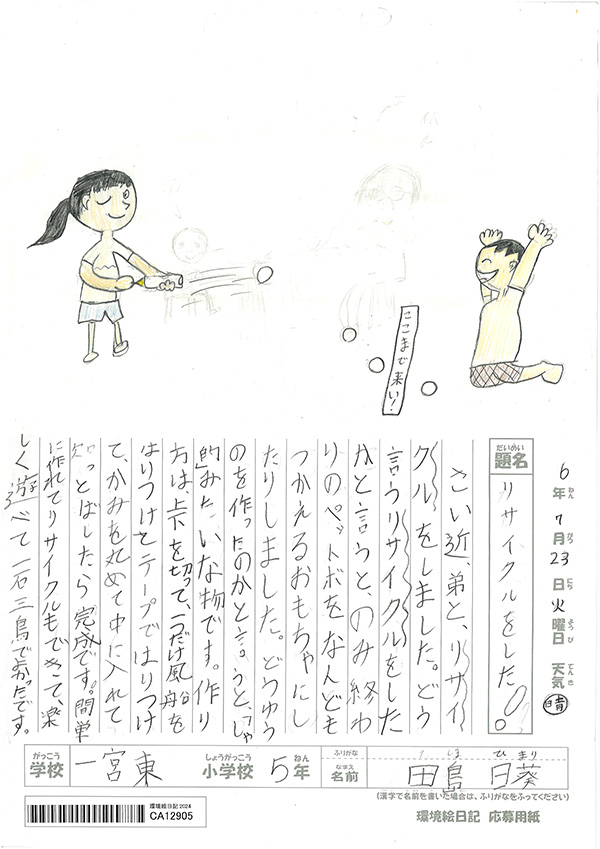 6年7月23日火曜日 天気晴
ねん がつ にち ようび てんき
だいめい
題名
リサイクルをした!。
さい近、弟と、リサイ
クルをしました。どう
言うリサイクルをした
かと言うと、のみ終わ
りのペットボをなんども
つかえるおもちゃにし
たりしました。どうゆう
のを作ったのかと言うと、「しゃ
的」みたいな物です。作り
方は、上下を切って、一つだけ風船を
はりつけとテープではりつけ
て、かみを丸めて中に入れて
っとばしたら完成です。間単
に作れてリサイクルもできて、楽
しく遊べて一石三鳥でよかったです。
ここまで来い!
がっこう しょうがっこう ねん
学校 一宮東 小学校 5年
ふりがな
なまえ
名前 田島 日葵
ひまり
(漢字で名前を書いた場合は、ふりがなをふってください)
環境絵日記2024
CA12905
環境絵日記 応募用紙